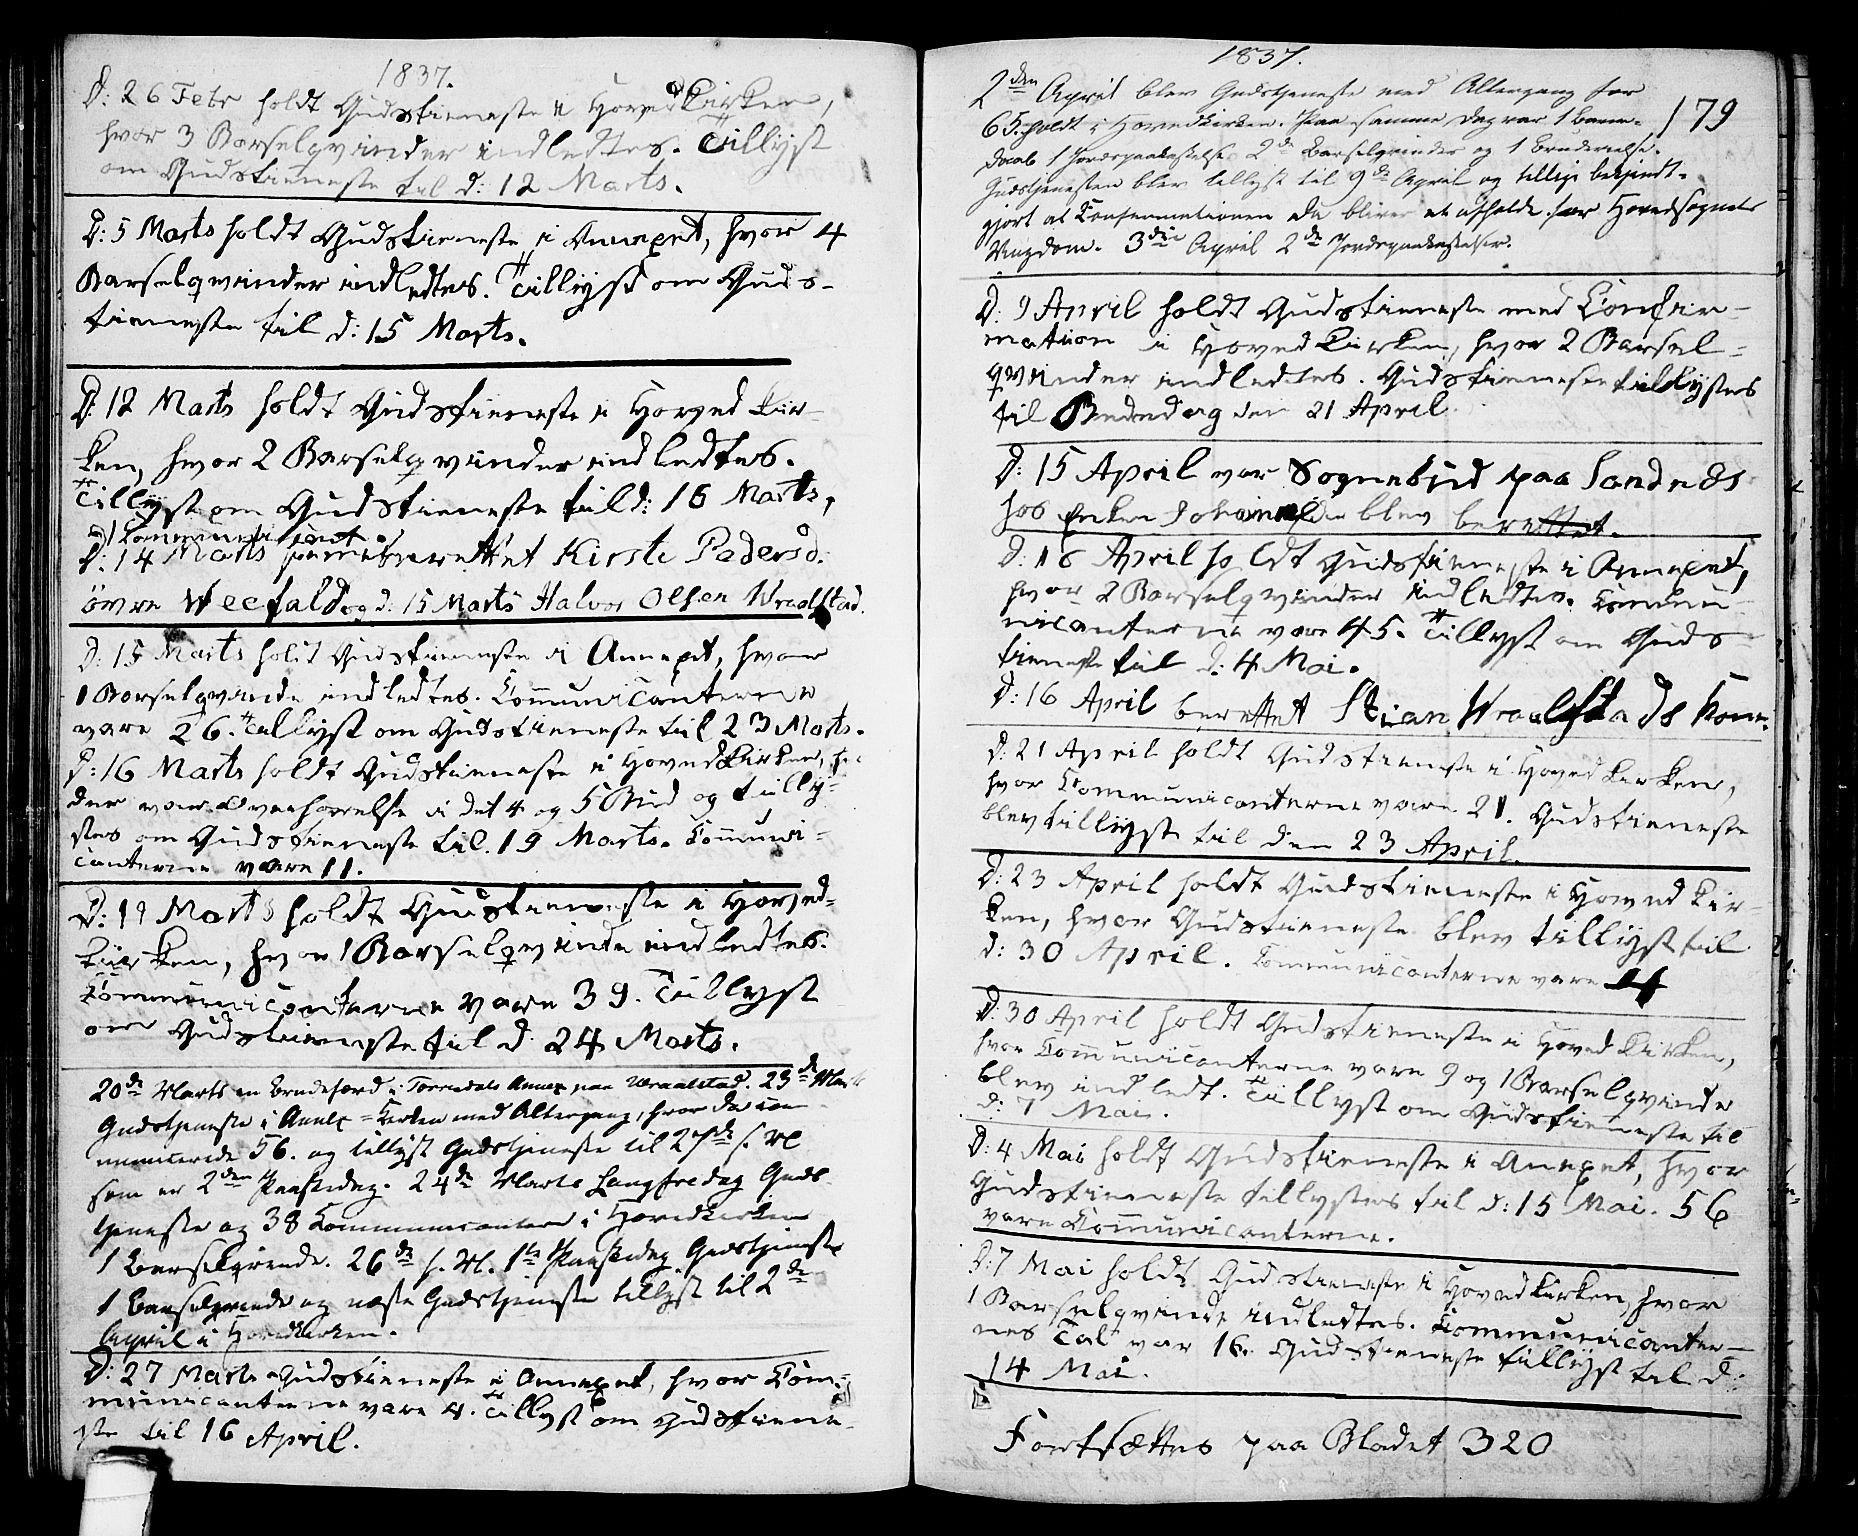 1837.
D: 26 Febr holdt Gudstieneste i Hovedkirken,
hvor 3 Barselqvinder indledtes. Tillyst
om Gudstieneste til d: 12 Marts.
D: 5 Marts holdt Gudstieneste i Annexet, hvor 4
Barselqvinder indledtes. Tillyst om Guds-
tieneste til d: 15 Marts.
D: 12 Marts holdt Gudstieneste i Hoved Kir-
ken, hvor 2 Barselqvinder indledtes.
Tillyst om Gudstieneste til d: 16 Marts,
D: 14 Marts berettet Kirsti Pedersd.
övre og d: 15 Marts Halvor Olsen Wraalstad.
D: 15 Marts holdt Gudstieneste i Annexet, hvor
1 Barselqvinde indledtes. Communicanterne
vare 26. Tillyst om Gudstieneste til 23 Marts.
D: 16 Marts holdt Gudstieneste i Hovedkirken,
der var Overhørelse i det 4 og 5 Bud og tilly-
stes om Gudstieneste til 19 Marts. Communi-
canterne vare 11.
D: 19 Marts holdt Gudstieneste i Hoved-
kirken, hvor 1 Barselqvinde indledtes.
Communicanterne vare 39. Tillyst
om Gudstieneste til d: 24 Marts.
20de Marts en Brudefærd i Torrdals Annex paa Wraalstad. 23de Marts
Gudstjeneste i Annex-Kirken med Altergang, hvor da com
municerede 56. og tillyst Gudstjeneste til 27de s. M
som er 2den Paaskedag. 24de Marts Langfredag Guds
tjeneste og 38 Communicantere i Hovedkirken
1 Barselqvinde. 26de s. M. 1ste Paaskedag Gudstjeneste
1 Barselqvinde og næste Gudstjeneste tillyst til 2den
April i Hovedkirken.
D: 27 Marts Gudstieneste i Annexet, hvor Com-
municanterne vare 4. Tillyst om Gudstiene-
ste til 16 April.
1837.
179
2den April blev Gudstjeneste med Altergang for
65. holdt i Hovedkirken. Paa samme Dag var 1 Barne-
daab 1 Jordspaakastelse 2de Barselqvinder og 1 Brudevielse.
Gudstjenesten blev tillyst til 9de April og tillige bekjendt-
gjort at Confirmationen da bliver at afholde for Hovedsognets
Ungdom. 3die April 2de Jordspaakastelser.
D: 9 April holdt Gudstieneste med Confir-
mation i Hovedkirken, hvor 2 Barsel-
qvinder indledtes. Gudstieneste tillystes
til Bededag den 21 April.
D: 15 April var Sognebud paa Sandnes
hos Enken blev berettet.
D: 16 April holdt Gudstieneste i Annexet,
hvor 2 Barselqvinder indledtes. Commu-
nicanterne vare 45. Tillyst om Guds-
tieneste til d: 4 Mai.
D: 16 April berettet Stian Wraalstads Kone.
D: 21 April holdt Gudstieneste i Hoved Kirken,
hvor Communicanterne vare 21. Gudstieneste
blev tillyst til den 23 April.
D: 23 April holdt Gudstieneste i Hoved Kir-
ken, hvor Gudstieneste blev tillyst til
d: 30 April. Communicanterne vare 14
D: 30 April holdt Gudstieneste i Hoved Kirken,
hvor Communicanterne vare 9 og 1 Barselqvinde
blev indledt. Tillyst om Gudstieneste til
d: 7 Mai.
D: 4 Mai holdt Gudstieneste i Annexet, hvor
Gudstieneste tillystes til d: 15 Mai. 56
vare Communicanterne.
D: 7 Mai holdt Gudstieneste i Hovedkirken, hvor
1 Barselqvinde indledtes. Communicanter-
nes Tal var 16. Gudstieneste tillyst til d:
14 Mai.
Fortsættes paa Bladet 320